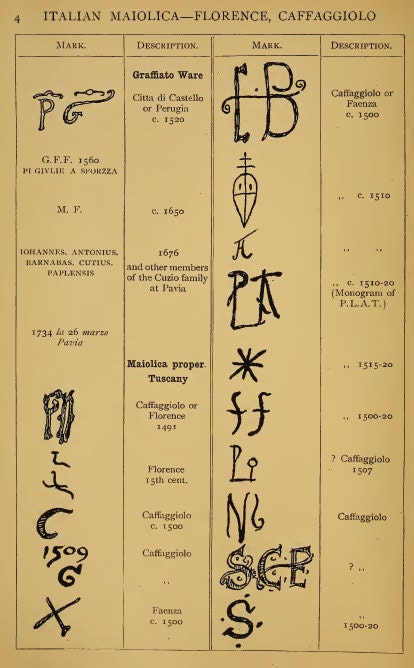 4 ITALIAN MAIOLICA—FLORENCE, CAFFAGGIOLO
MARK. DESCRIPTION. MARK. DESCRIPTION.
Graffiato Ware
P G
Citta di Castello
or Perugia
c. 1520
G.F.F. 1560
PI GIVLIE A SFORZZA
M. F.
c. 1650
IOHANNES. ANTONIUS.
BARNABAS. CUTIUS.
PAPIÆNSIS
1676
and other members
of the Cuzio family
at Pavia
1734 la 26 marzo
Pavia
Maiolica proper.
Tuscany
Caffaggiolo or
Florence
1491
Florence
15th cent.
C
Caffaggiolo
c. 1500
1509
G
Caffaggiolo
,,
Faenza
c. 1500
Caffaggiolo or
Faenza
c. 1500
,, c. 1510
,, ,,
,, c. 1510-20
(Monogram of
P.L.A.T.)
,, 1515-20
ff
,, 1500-20
? Caffaggiolo
1507
Caffaggiolo
S.C.P.
? ,,
.S.
,,
1500-20